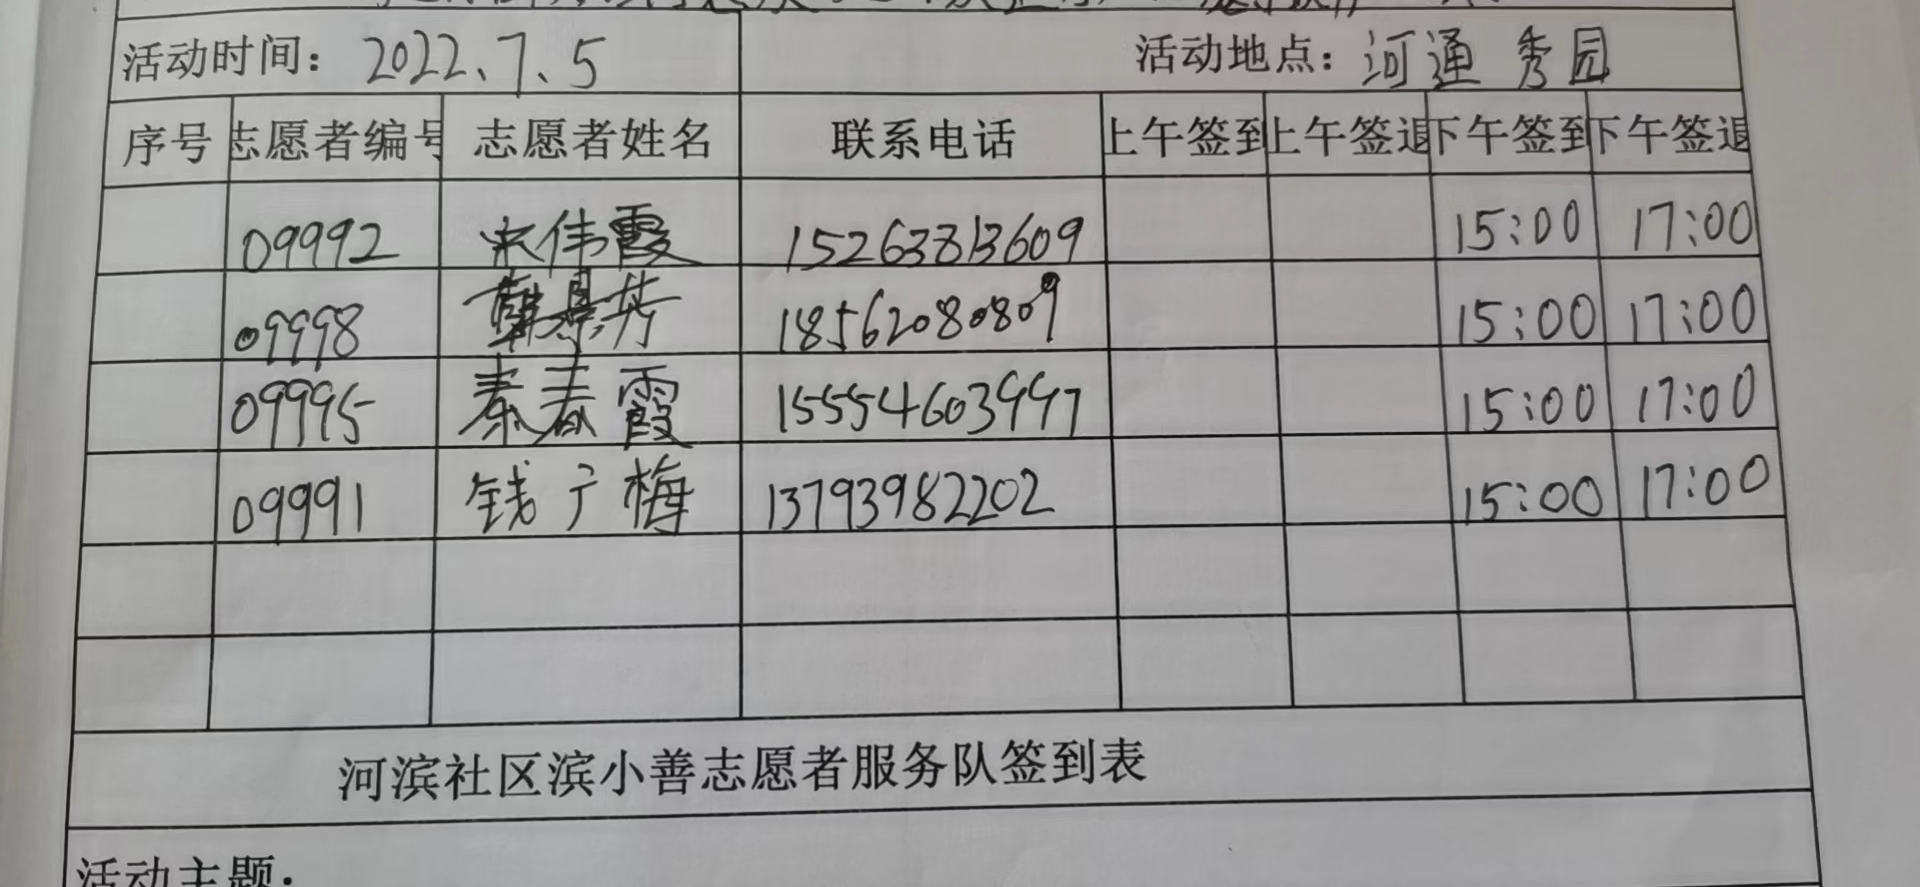 活动时间：2022、7、5 活动地点：河通秀园
序号 志愿者编号 志愿者姓名 联系电话 上午签到 上午签退 下午签到 下午签退
09992 宋伟霞 15263813609 15:00 17:00
09998 韩景丹 18562080809 15:00 17:00
09995 秦春霞 15554603997 15:00 17:00
09991 钱广梅 13793982202 15:00 17:00
河滨社区滨小善志愿者服务队签到表
活动主题：